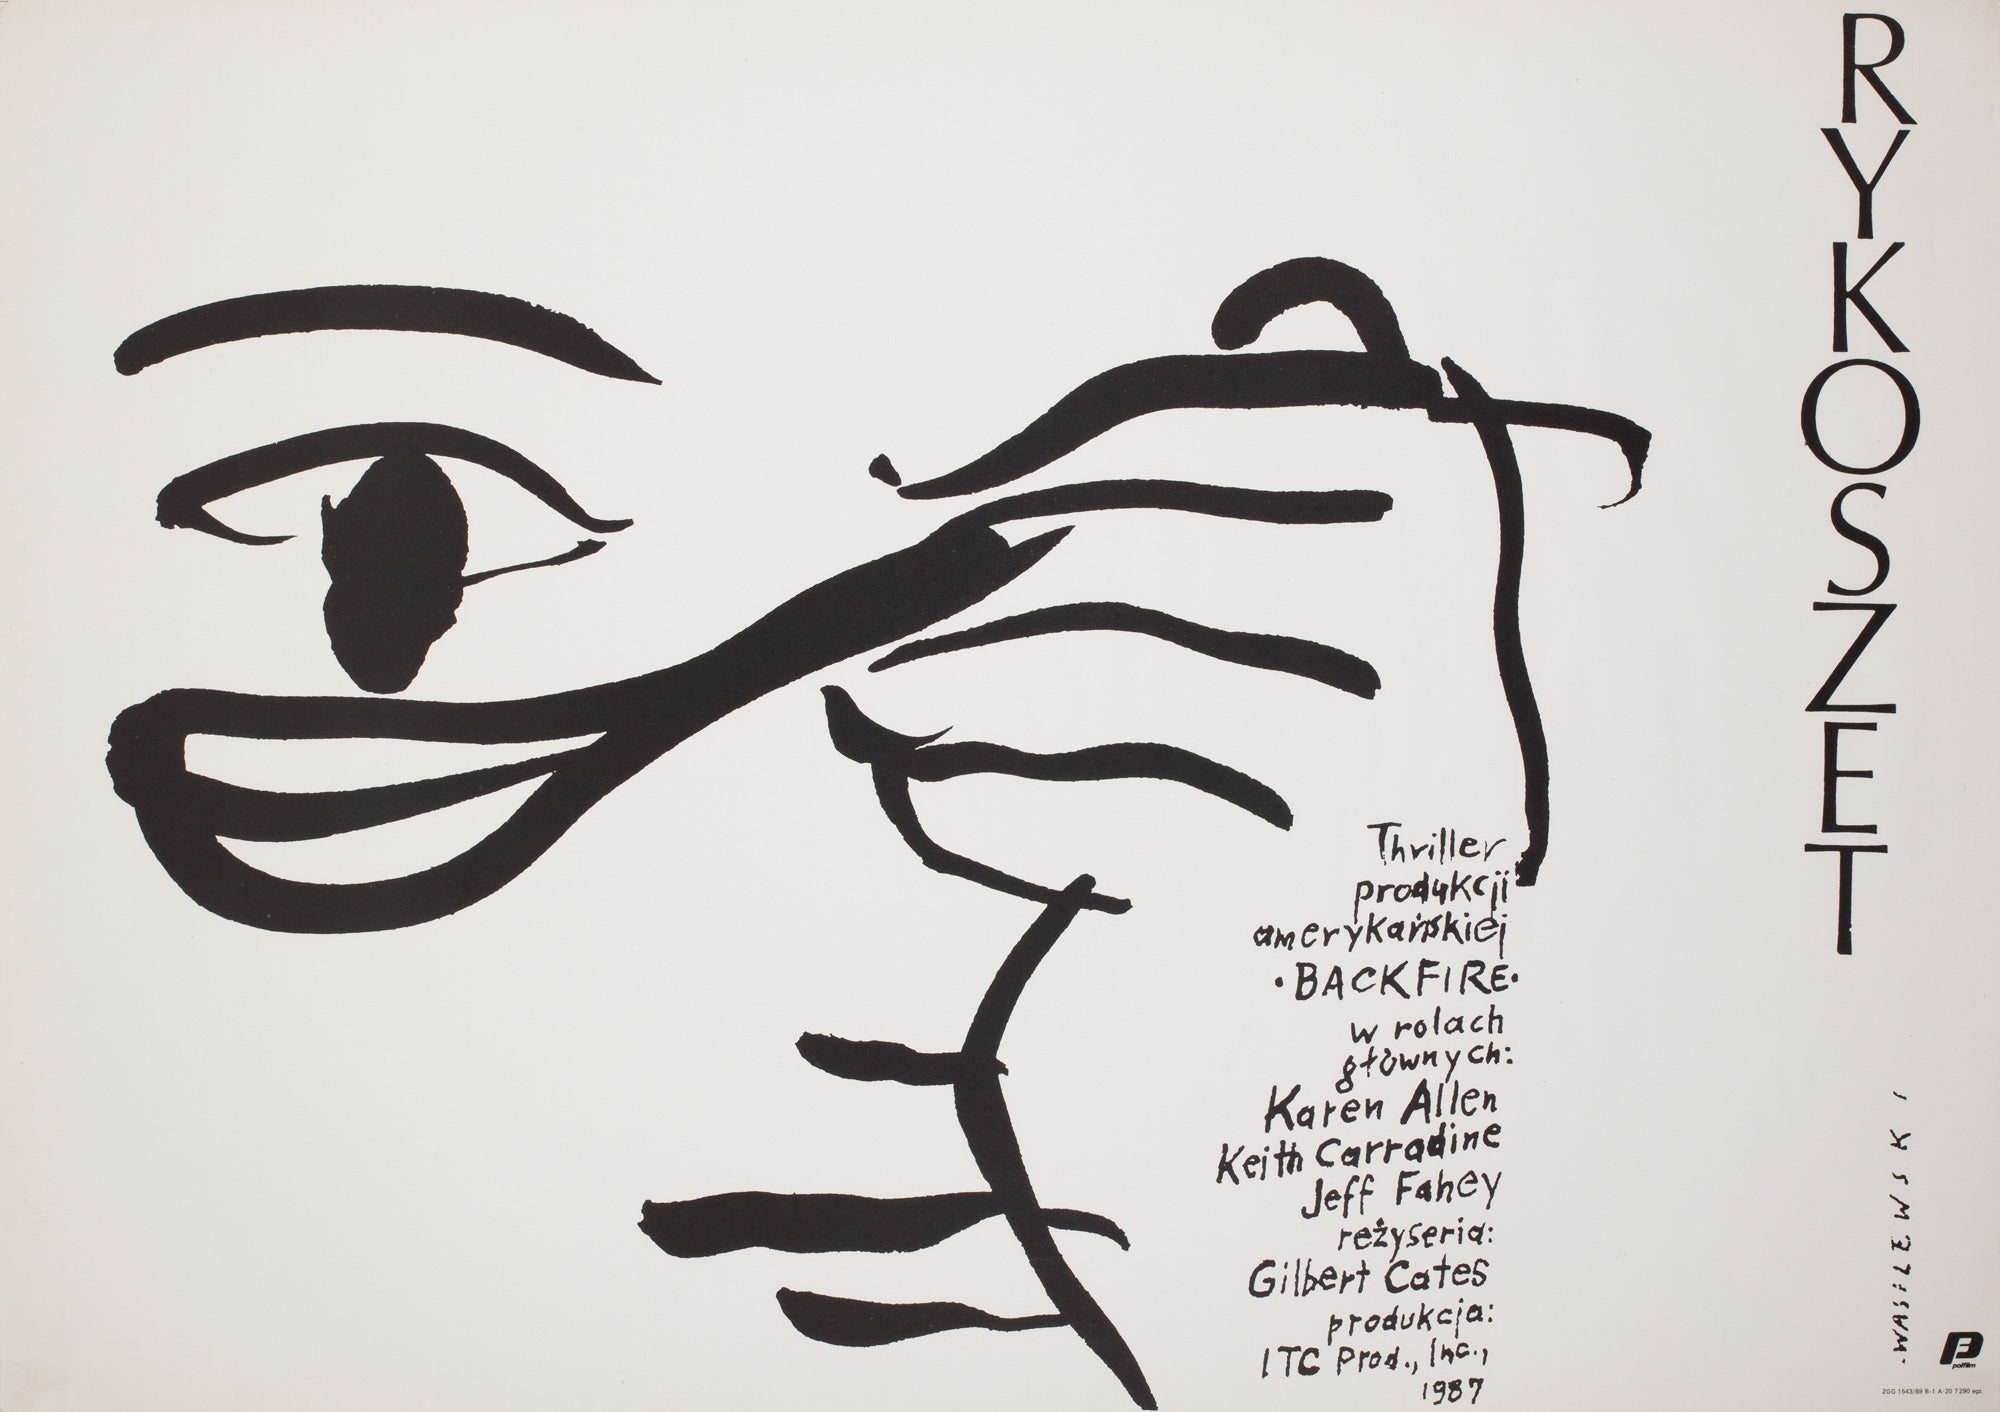 RYKOSZET
Thriller
produkcji
amerykańskiej
·BACKFIRE·
w rolach
głównych:
Karen Allen
Keith Carradine
Jeff Fahey
reżyseria:
Gilbert Cates
produkcja:
ITC Prod., Inc.,
1987
·WASILEWSKI
polfilm
ZGG 1543/89 B-1 A-20 7290 egz.